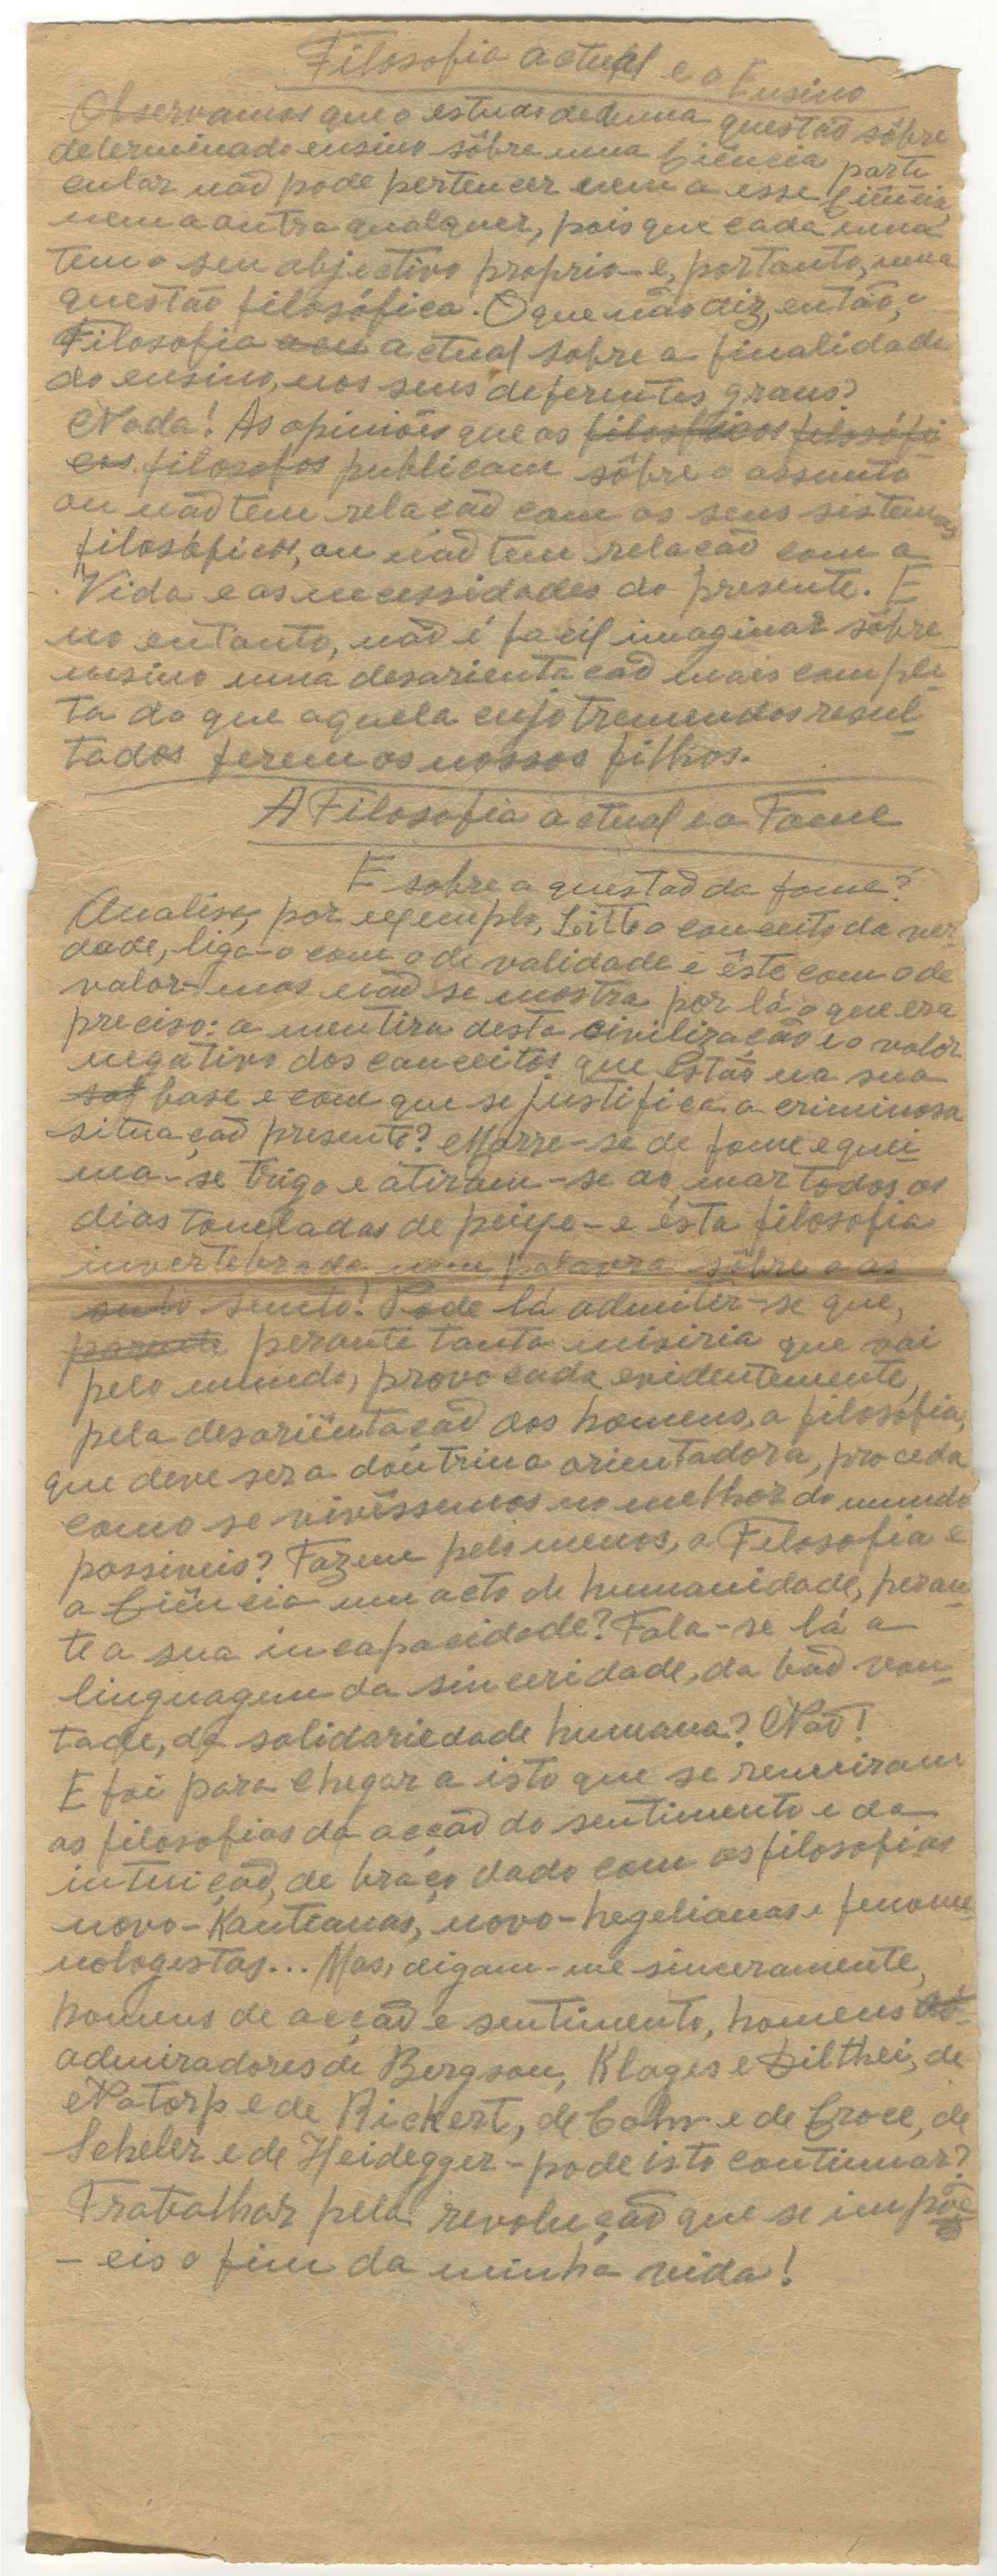 Filosofia actual e o Ensino
Observamos que o estudo de uma questão sôbre
determinado ensino sôbre uma Ciência parti
cular não pode pertencer nem a esse Ciência,
nem a outra qualquer, pois que cada uma
tem o seu objectivo proprio - e, portanto, uma
questão filosófica. O que não diz, então, a
Filosofia actual sobre a finalidade
do ensino, nos seus deferentes graus?
Nada! As opiniões que os filosóficos filosófi
cos filosofos publicam sôbre o assunto
ou não tem relação com os seus sistemas
filosóficos, ou não tem relação com a
Vida e as necessidades do presente. E
no entanto, não é facil imaginar sôbre
ensino uma desorientação mais comple
ta do que aquela cujo tremendos resul
tados ferem os nossos filhos.
A Filosofia actual e a Fome
E sobre a questão da fome?
Analise, por exemplo, Litt o conceito da ver
dade, liga-o com o de validade e êste com o de
valor - mas não se mostra por lá o que era
preciso: a mentira desta civilização e o valor
negativo dos conceitos que estão na sua
sob base e com que se justifica a criminosa
situação presente? Morre-se de fome e quei
ma-se trigo e atiram-se ao mar todos os
dias toneladas de peixe - e ésta filosofia
invertebrada nem palavra sôbre o as
sunto sunto! Pode lá admitir-se que,
parante perante tanta miséria que vai
pelo mundo, provocada evidentemente,
pela desoriëntação dos homens, a filosofia,
que deve ser a doutrina orientadora, proceda
como se vivêssemos no melhor do mundo
possiveis? Fazem pelo menos, a Filosofia e
a Ciência um acto de humanidade, peran
te a sua incapacidade? Fala-se lá a
linguagem da sinceridade, da boa von
tade, da solidariedade humana? Não!
E foi para chegar a isto que se reuniram
as filosofias da acção do sentimento e da
intuição, de braço dado com as filosofias
novo-Kanteanas, novo-hegelianas e fenome
nologestas... Mas, digam-me sinceramente,
homens de acção e sentimento, homens
admiradores de Bergson, Klages e Dilthei, de
Natorp e de Rickert, de Cohn e de Croce, de
Scheler e de Heidegger - pode isto continuar?
Trabalhar pela revolução que se impõe
- eis o fim da minha vida!